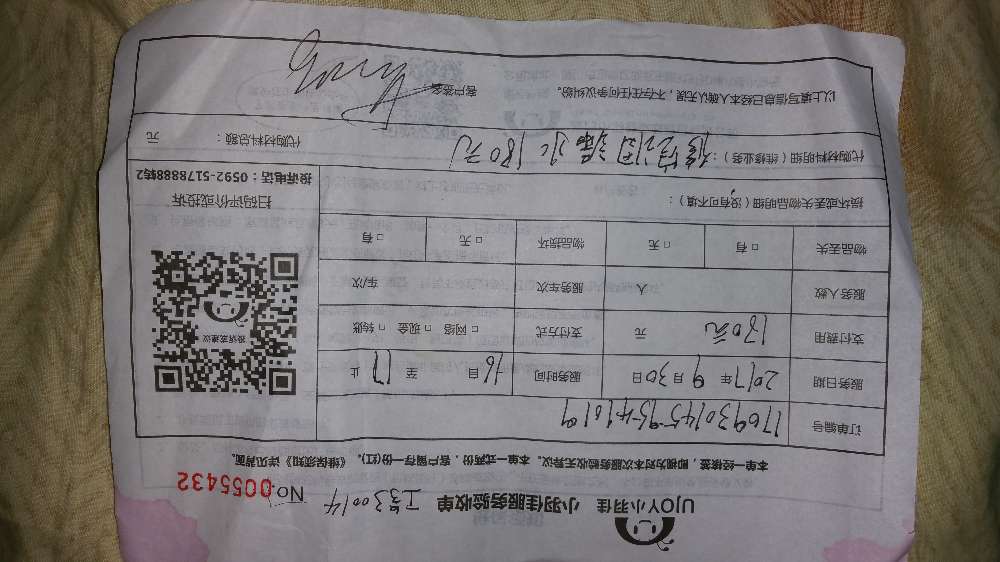 UJOY小羽佳 小羽佳服务验收单 工号30014 No.0055432
本单一经核签,即视为对本次服务验收无异议。本单一式两份,客户留存一份(红)。《维保须知》详见背面。
订单编号 170930145954161619
服务日期 2017年9月30日 服务时间 16自 至17止
支付费用 180元 元 支付方式 □网络 □现金 □转账
服务人数 人 服务车次 车/次
物品丢失 □有 □无 物品损坏 □无 □有
损坏或丢失物品明细(没有可不填):
代购材料明细(维修业务): 修空调漏水180元 代购材料总额: 元
以上填写信息已经本人确认无误,不存在任何争议纠纷。 客户签名
投诉或建议
扫码评价或投诉
投诉电话:0592-5178888转2